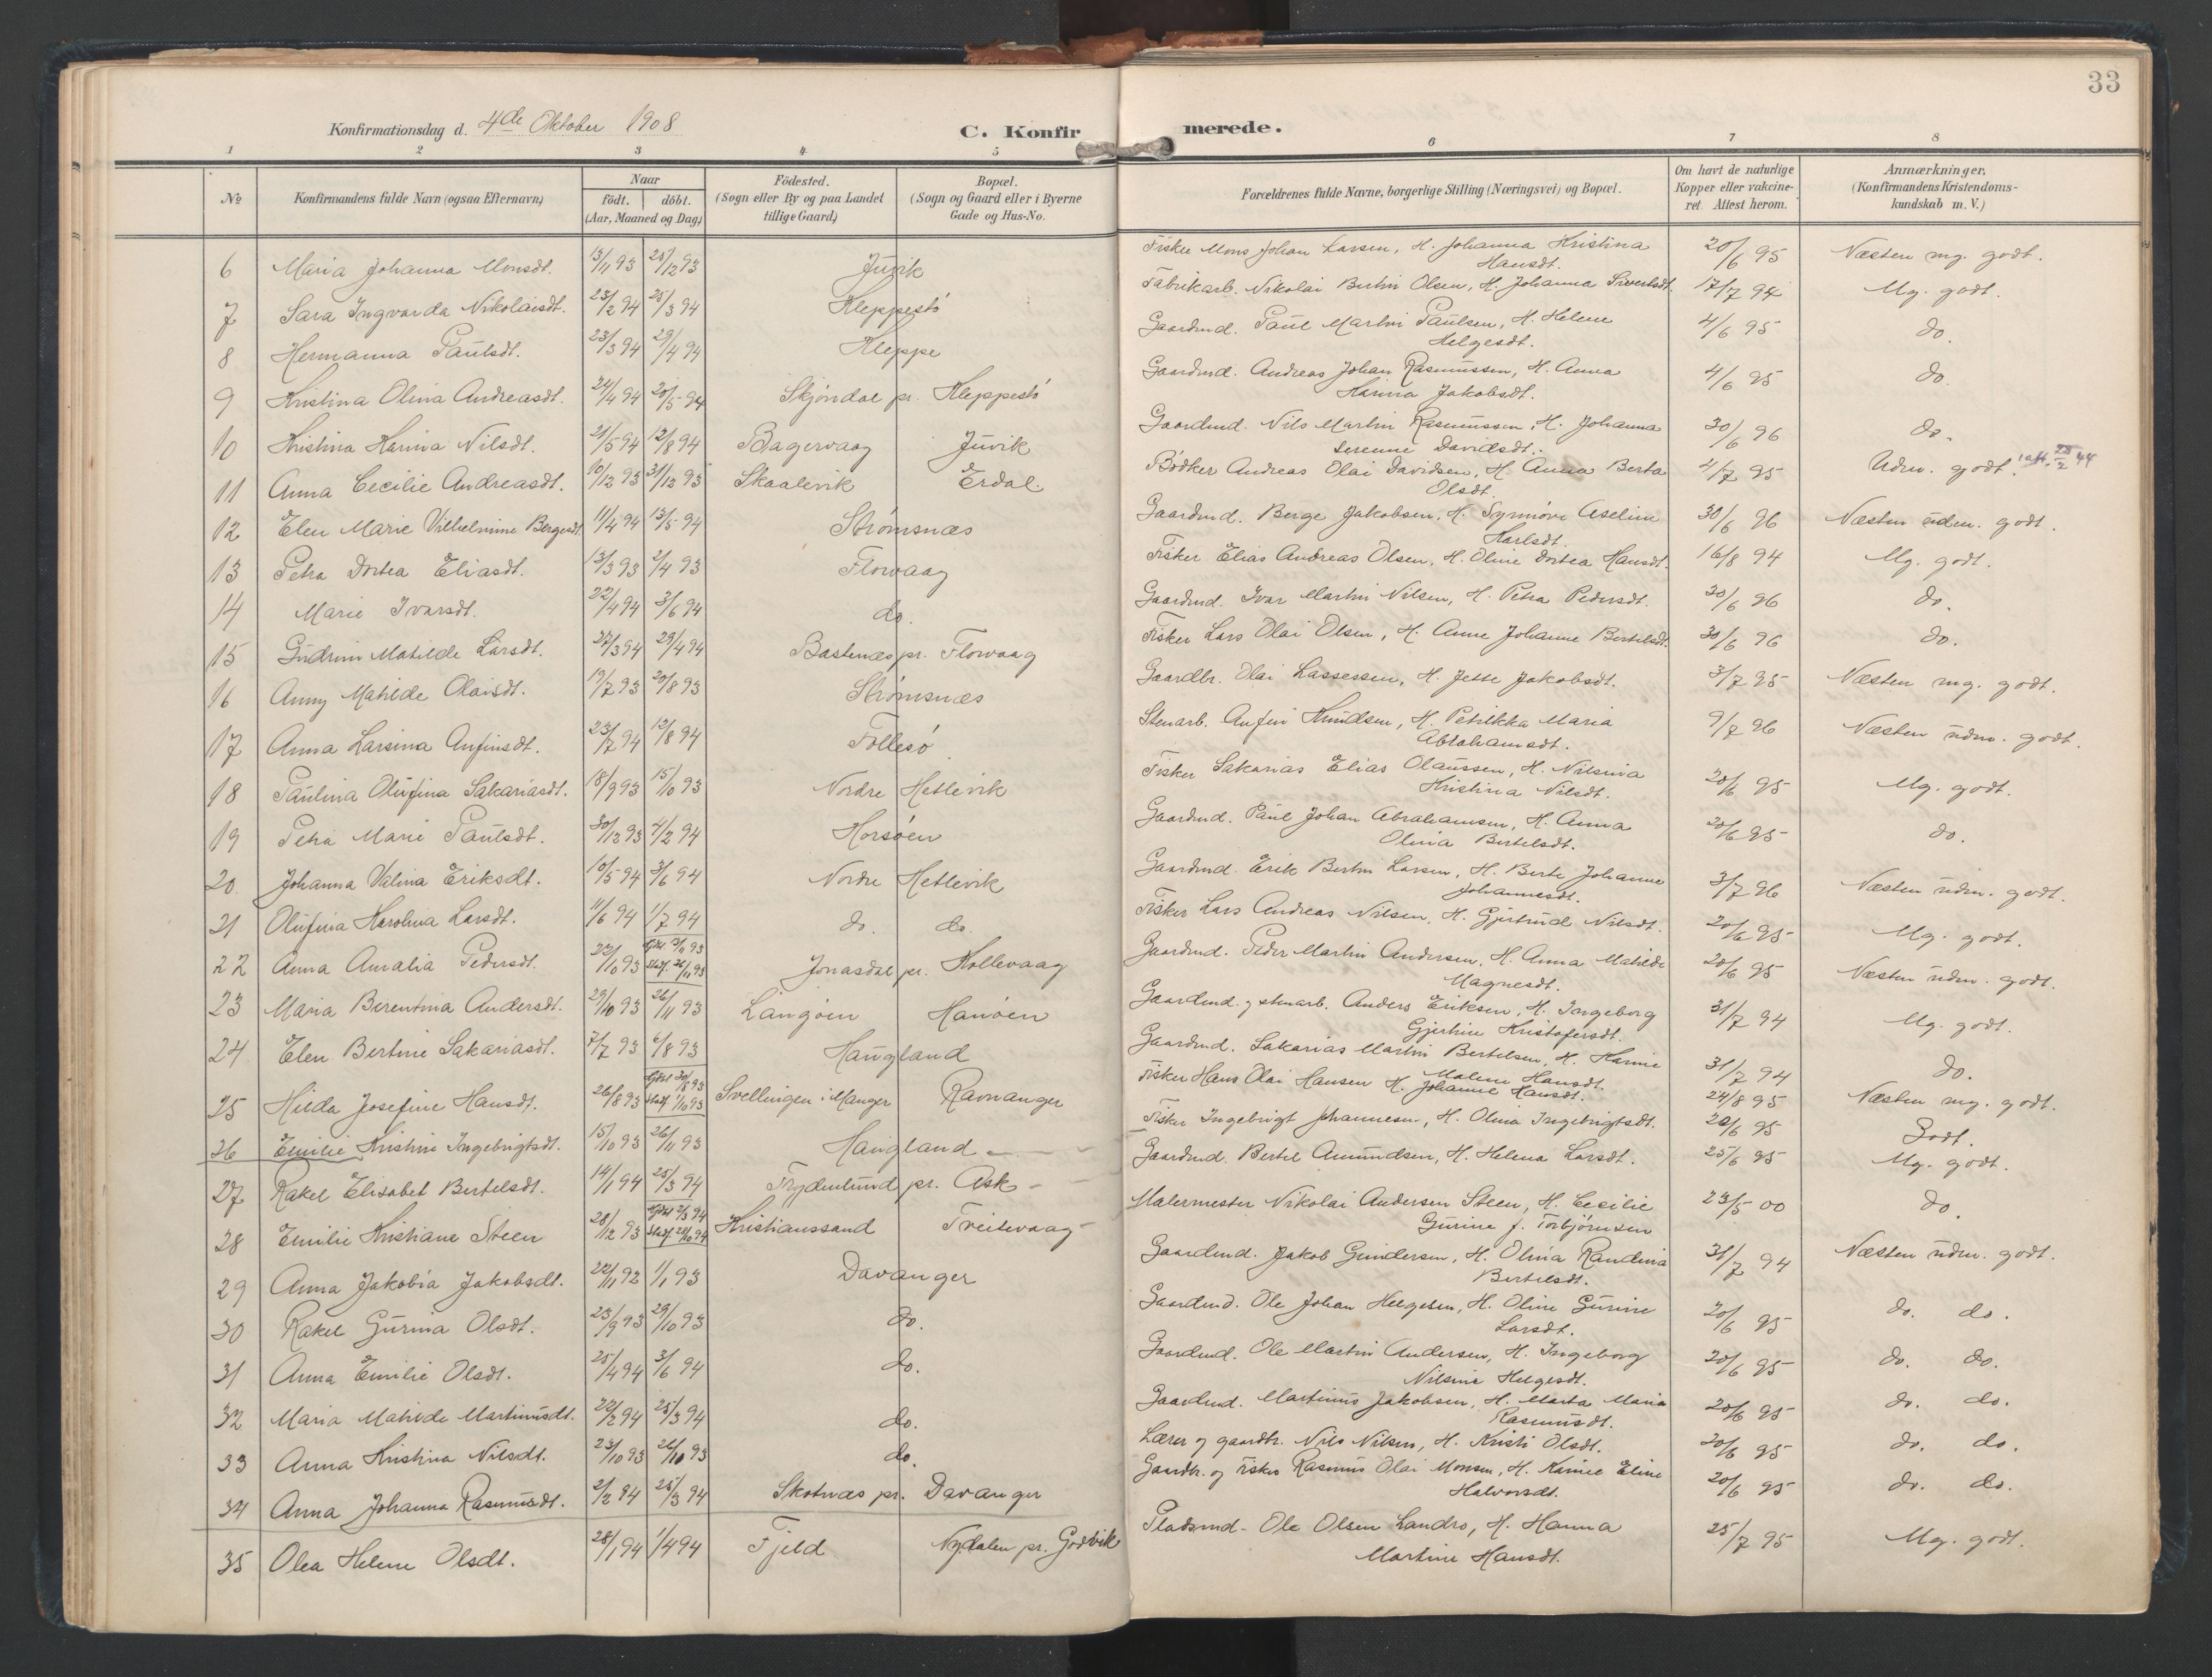 33
Konfirmationsdag d. 4de Oktober 1908
C. Konfirmerede.
1 2 3 4 5 6 7 8
№ Konfirmandens fulde Navn (ogsaa Efternavn) Naar födt. döbt. (Aar, Maaned og Dag) Födested. (Sogn eller By og paa Landet tillige Gaard) Bopæl. (Sogn og Gaard eller i Byerne Gade og Hus-No. Forældrenes fulde Navne, borgerlige Stilling (Næringsvei) og Bopæl. Om havt de naturlige Kopper eller vakcineret. Attest herom. Anmærkninger. (Konfirmandens Kristendomskundskab m. V.)
6 Maria Johanna Monsdt. 13/11 93 25/12 93 Juvik Fisker Mons Johan Larsen, H. Johanna Kristina Hansdt. 20/6 95 Næsten mg. godt.
7 Sara Ingvarda Nikolaisdt. 23/2 94 25/3 94 Kleppestö Fabrikarb. Nikolai Bertin Olsen, H. Johanna Sivertsdt. 17/7 94 Mg. godt.
8 Hermanna Paulsdt. 23/3 94 29/4 94 Kleppe Gaardmd. Paul Martin Paulsen, H. Helene Helgesdt. 4/6 95 do.
9 Kristina Olina Andreasdt. 24/4 94 20/5 94 Skjöndal pr. Kleppestö Gaardmd. Andreas Johan Rasmussen, H. Anna Karina Jakobsdt. 4/6 95 do.
10 Kristina Karina Nilsdt. 21/5 94 12/8 94 Bagervaag Juvik Gaardmd. Nils Martin Rasmussen, H. Johanna Serenne Davidsdt. 30/6 96 do.
11 Anna Cecilie Andreasdt. 10/12 93 31/12 93 Skaalevik Erdal. Bödker Andreas Olai Davidsen, H. Anna Berta Olsdt. 4/7 95 Udm. godt. 1 att. 28/2 44
12 Elen Marie Vilhelmine Bergesdt. 11/4 94 13/5 94 Strömsnæs Gaardmd. Berge Jakobsen, H. Synnöve Aseline Karlsdt. 30/6 96 Næsten udm. godt.
13 Petra Dortea Eliasdt. 13/3 93 2/4 93 Florvaag Fisker Elias Andreas Olsen, H. Oline Dortea Hansdt. 16/8 94 Mg. godt.
14 Marie Ivarsdt. 22/4 94 3/6 94 do. Gaardmd. Ivar Martin Nilsen, H. Petra Pedersdt. 30/6 96 do.
15 Gudrun Matilde Larsdt. 27/3 94 29/4 94 Bastenæs pr. Florvaag Fisker Lars Olai Olsen, H. Anne Johanne Bertelsdt. 30/6 96 do.
16 Anny Matilde Olaisdt. 19/7 93 20/8 93 Strömsnæs Gaardbr. Olai Lassessen, H. Jette Jakobsdt. 3/7 95 Næsten mg. godt.
17 Anna Larsina Anfinsdt. 23/7 94 12/8 94 Follesö Stenarb. Anfin Knudsen, H. Petrikka Maria Abrahamsdt. 9/7 96 Næsten udm. godt.
18 Paulina Olufina Sakariasdt. 18/9 93 15/10 93 Nordre Hetlevik Fisker Sakarias Elias Olaussen, H. Nilsina Kristina Nilsdt. 20/6 95 Mg. godt.
19 Petra Marie Paulsdt. 30/12 93 4/2 94 Horsöen Gaardmd. Paul Johan Abrahamsen, H. Anna Olina Bertelsdt. 20/6 95 do.
20 Johanna Valina Eriksdt. 10/5 94 3/6 94 Nordre Hetlevik Gaardmd. Erik Bertin Larsen, H. Berte Johanne Johannesdt. 3/7 96 Næsten udm. godt.
21 Olufina Karolina Larsdt. 11/6 94 1/7 94 do. do. Fisker Lars Andreas Nilsen, H. Gjertrud Nilsdt. 20/6 95 Mg. godt.
22 Anna Amalia Pedersdt. 22/10 93 Hjdt 5/11 93 Stadf. 26/11 93 Jonasdal pr. Kollevaag Gaardmd. Peder Martin Andersen, H. Anna Matilde Magnesdt. 20/6 95 Næsten udm. godt.
23 Maria Berentina Andersdt. 29/10 93 26/11 93 Langöen Hanöen Gaardmd. og stenarb. Anders Eriksen, H. Ingeborg Gjertine Kristofersdt. 31/7 94 Mg. godt.
24 Elen Bertine Sakariasdt. 7/7 93 6/8 93 Haugland Gaardmd. Sakarias Martin Bertelsen, H. Karine Malene Hansdt. 31/7 94 do.
25 Hilda Josefine Hansdt. 26/8 93 Hjdt 30/8 93 Stadf. 1/10 93 Svellingen i Manger Ravnanger Fisker Hans Olai Hansen H. Johanne Hansdt. 24/8 95 Næsten mg. godt.
26 Emilie Kristine Ingebrigtsdt. 15/10 93 26/11 93 Haugland Fisker Ingebrigt Johannesen, H. Olina Ingebrigtsdt. 20/6 95 Godt.
27 Rakel Elisabet Bertelsdt. 14/1 94 25/3 94 Frydenlund pr. Ask Gaardmd. Bertel Amundsen, H. Helena Larsdt. 25/6 95 Mg. godt.
28 Emilie Kristiane Steen 28/12 93 Hjdt 2/3 94 Stadf. 28/10 94 Kristianssand Treitevaag Malermester Nikolai Andersen Steen, H. Cecilie Gurine f. Torbjörnsen 23/5 00 do.
29 Anna Jakobia Jakobsdt. 22/11 92 1/1 93 Davanger Gaardmd. Jakob Gundersen, H. Olina Randina Bertelsdt. 31/7 94 Næsten udm. godt.
30 Rakel Gurina Olsdt. 23/9 93 29/10 93 do. Gaardmd. Ole Johan Helgesen, H. Oline Gurine Larsdt. 20/6 95 do. do.
31 Anna Emilie Olsdt. 25/4 94 3/6 94 do. Gaardmd. Ole Martin Andersen, H. Ingeborg Nilsina Helgesdt. 20/6 95 do. do.
32 Maria Matilde Martinusdt. 22/2 94 25/3 94 do. Gaardmd. Martinus Jakobsen, H. Marta Maria Rasmusdt. 20/6 95 do. do.
33 Anna Kristina Nilsdt. 23/10 93 26/10 93 do. Lærer og gaardbr. Nils Nilsen, H. Kristi Olsdt. 20/6 95 do. do.
34 Anna Johanna Rasmusdt. 2/2 94 25/3 94 Skotnæs pr. Davanger Gaardbr. og fisker Rasmus Olai Monsen, H. Karine Eline Halvorsdt. 20/6 95 do. do.
35 Olea Helene Olsdt. 28/1 94 1/4 94 Fjeld Nydalen pr. Godvik Pladsmd. Ole Olsen Landro, H. Hanna Martine Hansdt. 25/7 95 Mg. godt.